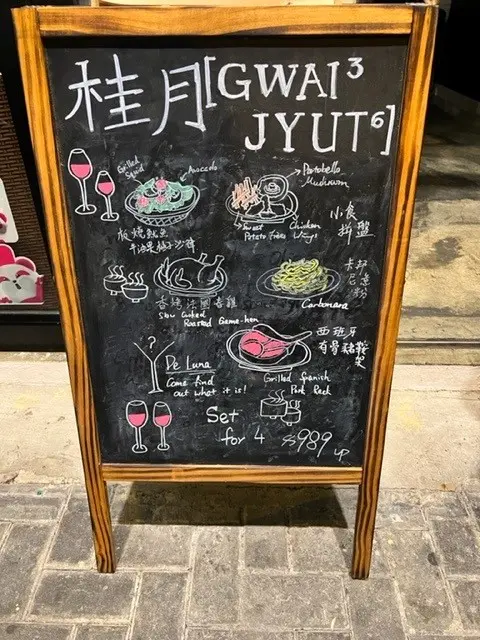 桂月[GWAI³
JYUT⁶]
Grilled
Squid
Avocado
板燒魷魚
牛油果柚子沙律
Portobello
Mushroom
Sweet
Potato Fries
Chicken
Wings
小食
拼盤
香烤法國春雞
Slow Cooked
Roasted Game-hen
卡邦
尼意
粉
Carbonara
?
De Luna
Come find
out what it is!
西班牙
有骨豬鞍
架
Grilled Spanish
Pork Rack
Set
for 4
$989
up